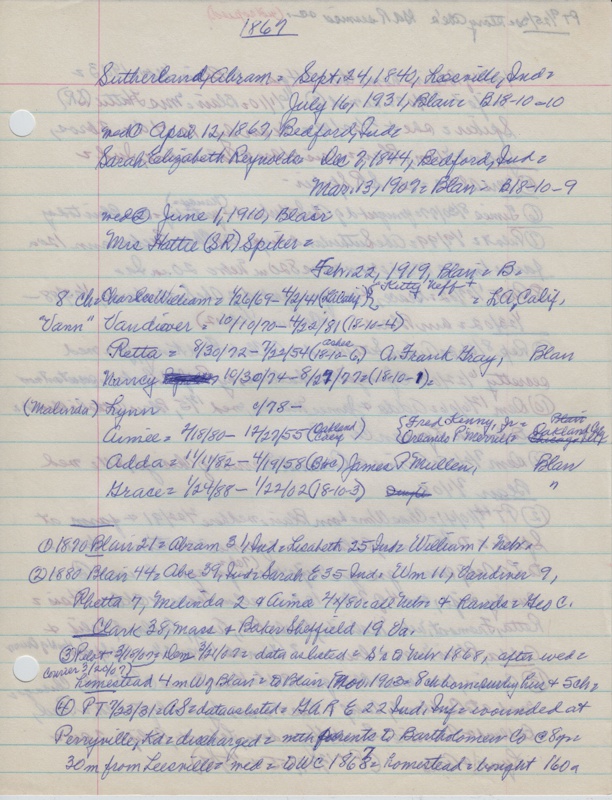 1867
Sutherland, Abram = Sept. 24, 1840, Leesville, Ind =
July 16, 1931, Blair = B18-10-10
med① April 12, 1867, Bedford, Ind =
Sarah Elizabeth Reynolds = Dec 7, 1844, Bedford, Ind =
Mar. 13, 1907 = Blair = B18-10-9
med② June 1, 1910, Blair
Mrs Hattie (SR) Spiker =
Feb. 22, 1919, Blair = B.
8 ch = Charles William = 1/26/69 - 4/2/41 Kitty Neff + = LA, Calif.
"Vann" Vandiver = 10/10/70 - 4/22/81 (18-10-4)
Retta = 8/30/72 - 7/22/54 (18-10-6) ashes A. Frank Gray, Blair
Nancy 10/30/74 - 8/27/77 = (18-10-1) =
(Malinda) Lynn c/78 -
Aimee = 2/18/80 - 12/27/55 (Oakland Fred Kenny, Jr = Blair
Orlando P Merrill = Oakland
Adda = 11/11/82 - 4/19/58 (BlC) James P Mullen, Blair
Grace = 1/24/88 - 1/22/02 (18-10-3) "
① 1870 Blair 21 = Abram 31, Ind = Lisabeth 25 Ind = William 1. Nebr =
② 1880 Blair 44 = Abe 39, Ind = Sarah E 35 Ind = Wm 11, Vandiver 9,
Rhetta 7, Melinda 2 & Aima 4/80 = all Nebr & Hands = Geo C.
Clark 38, Mass & Baker Sheffield 19 Va.
③ Pilot 3/19/07 = Dem 3/21/07 = data as listed = S's to Nebr 1868, after wed =
Courier 3/20/07)
Homestead 4 m W of Blair = to Blair Nov 1903 = 8 ch born Surv by Hus & 5 ch =
④ PT 7/23/31 = AS = data as listed = GAR E 22 Ind, Inf = wounded at
Perryville, Kd = discharged = mth parents to Bartholomew Co @ 8 yr =
30 m from Leesville = med = to WC 1868 = Homestead = bought 160a